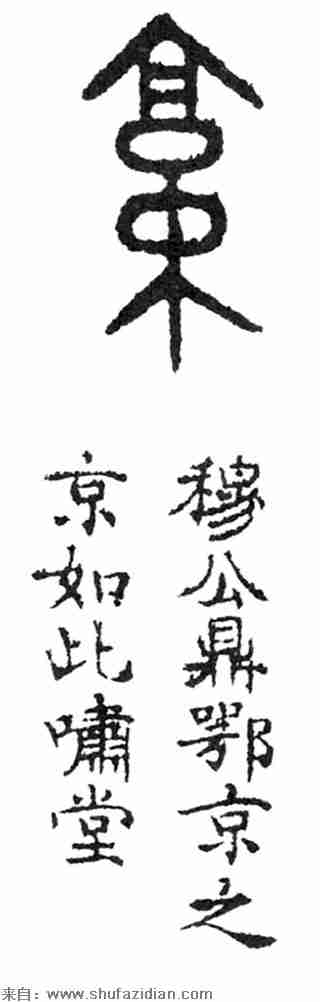 穆公鼎鄂京之
京如此嘯堂
来自：www.shufazidian.com